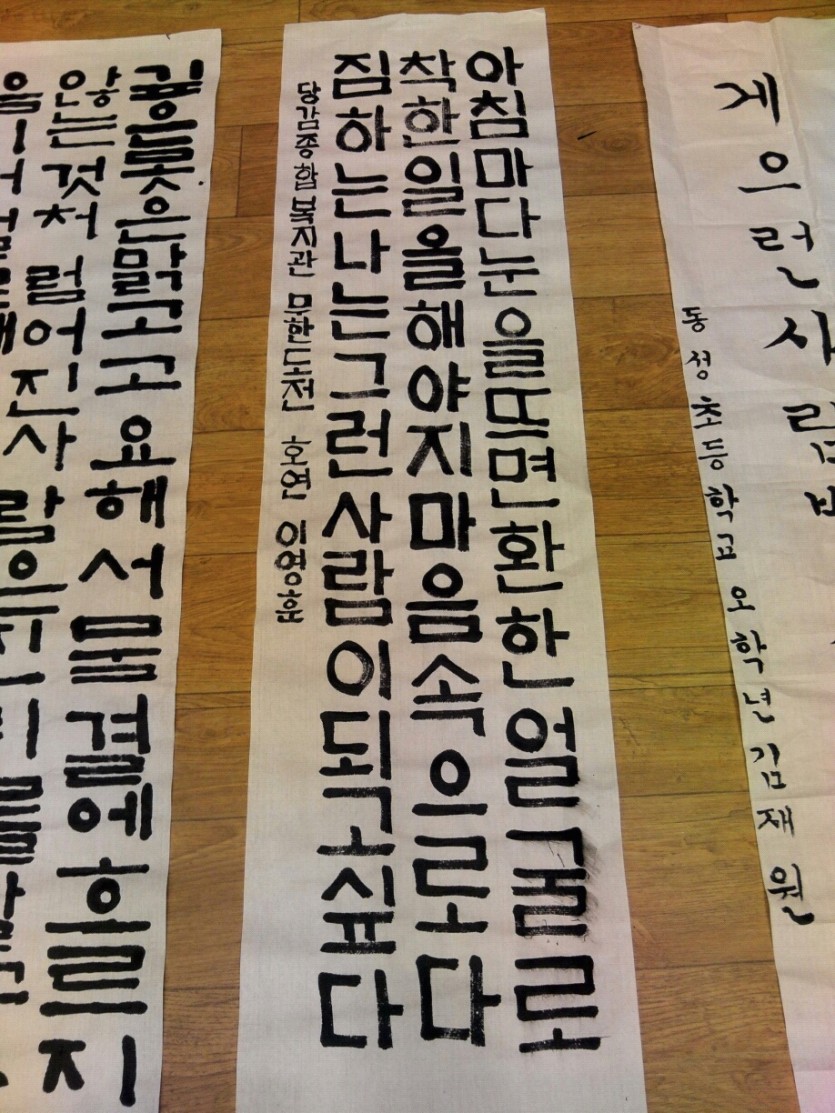 게으런사람
동성초등학교 오학년 김재원
아침마다눈을뜨면환한얼굴로
착한일을해야지마음속으로다
짐하는나는그런사람이되고싶다
당감종합복지관 무한도전 호연 이영훈
깊은못은맑고고요해서물결에흐르지
않는것처럼어진사람은